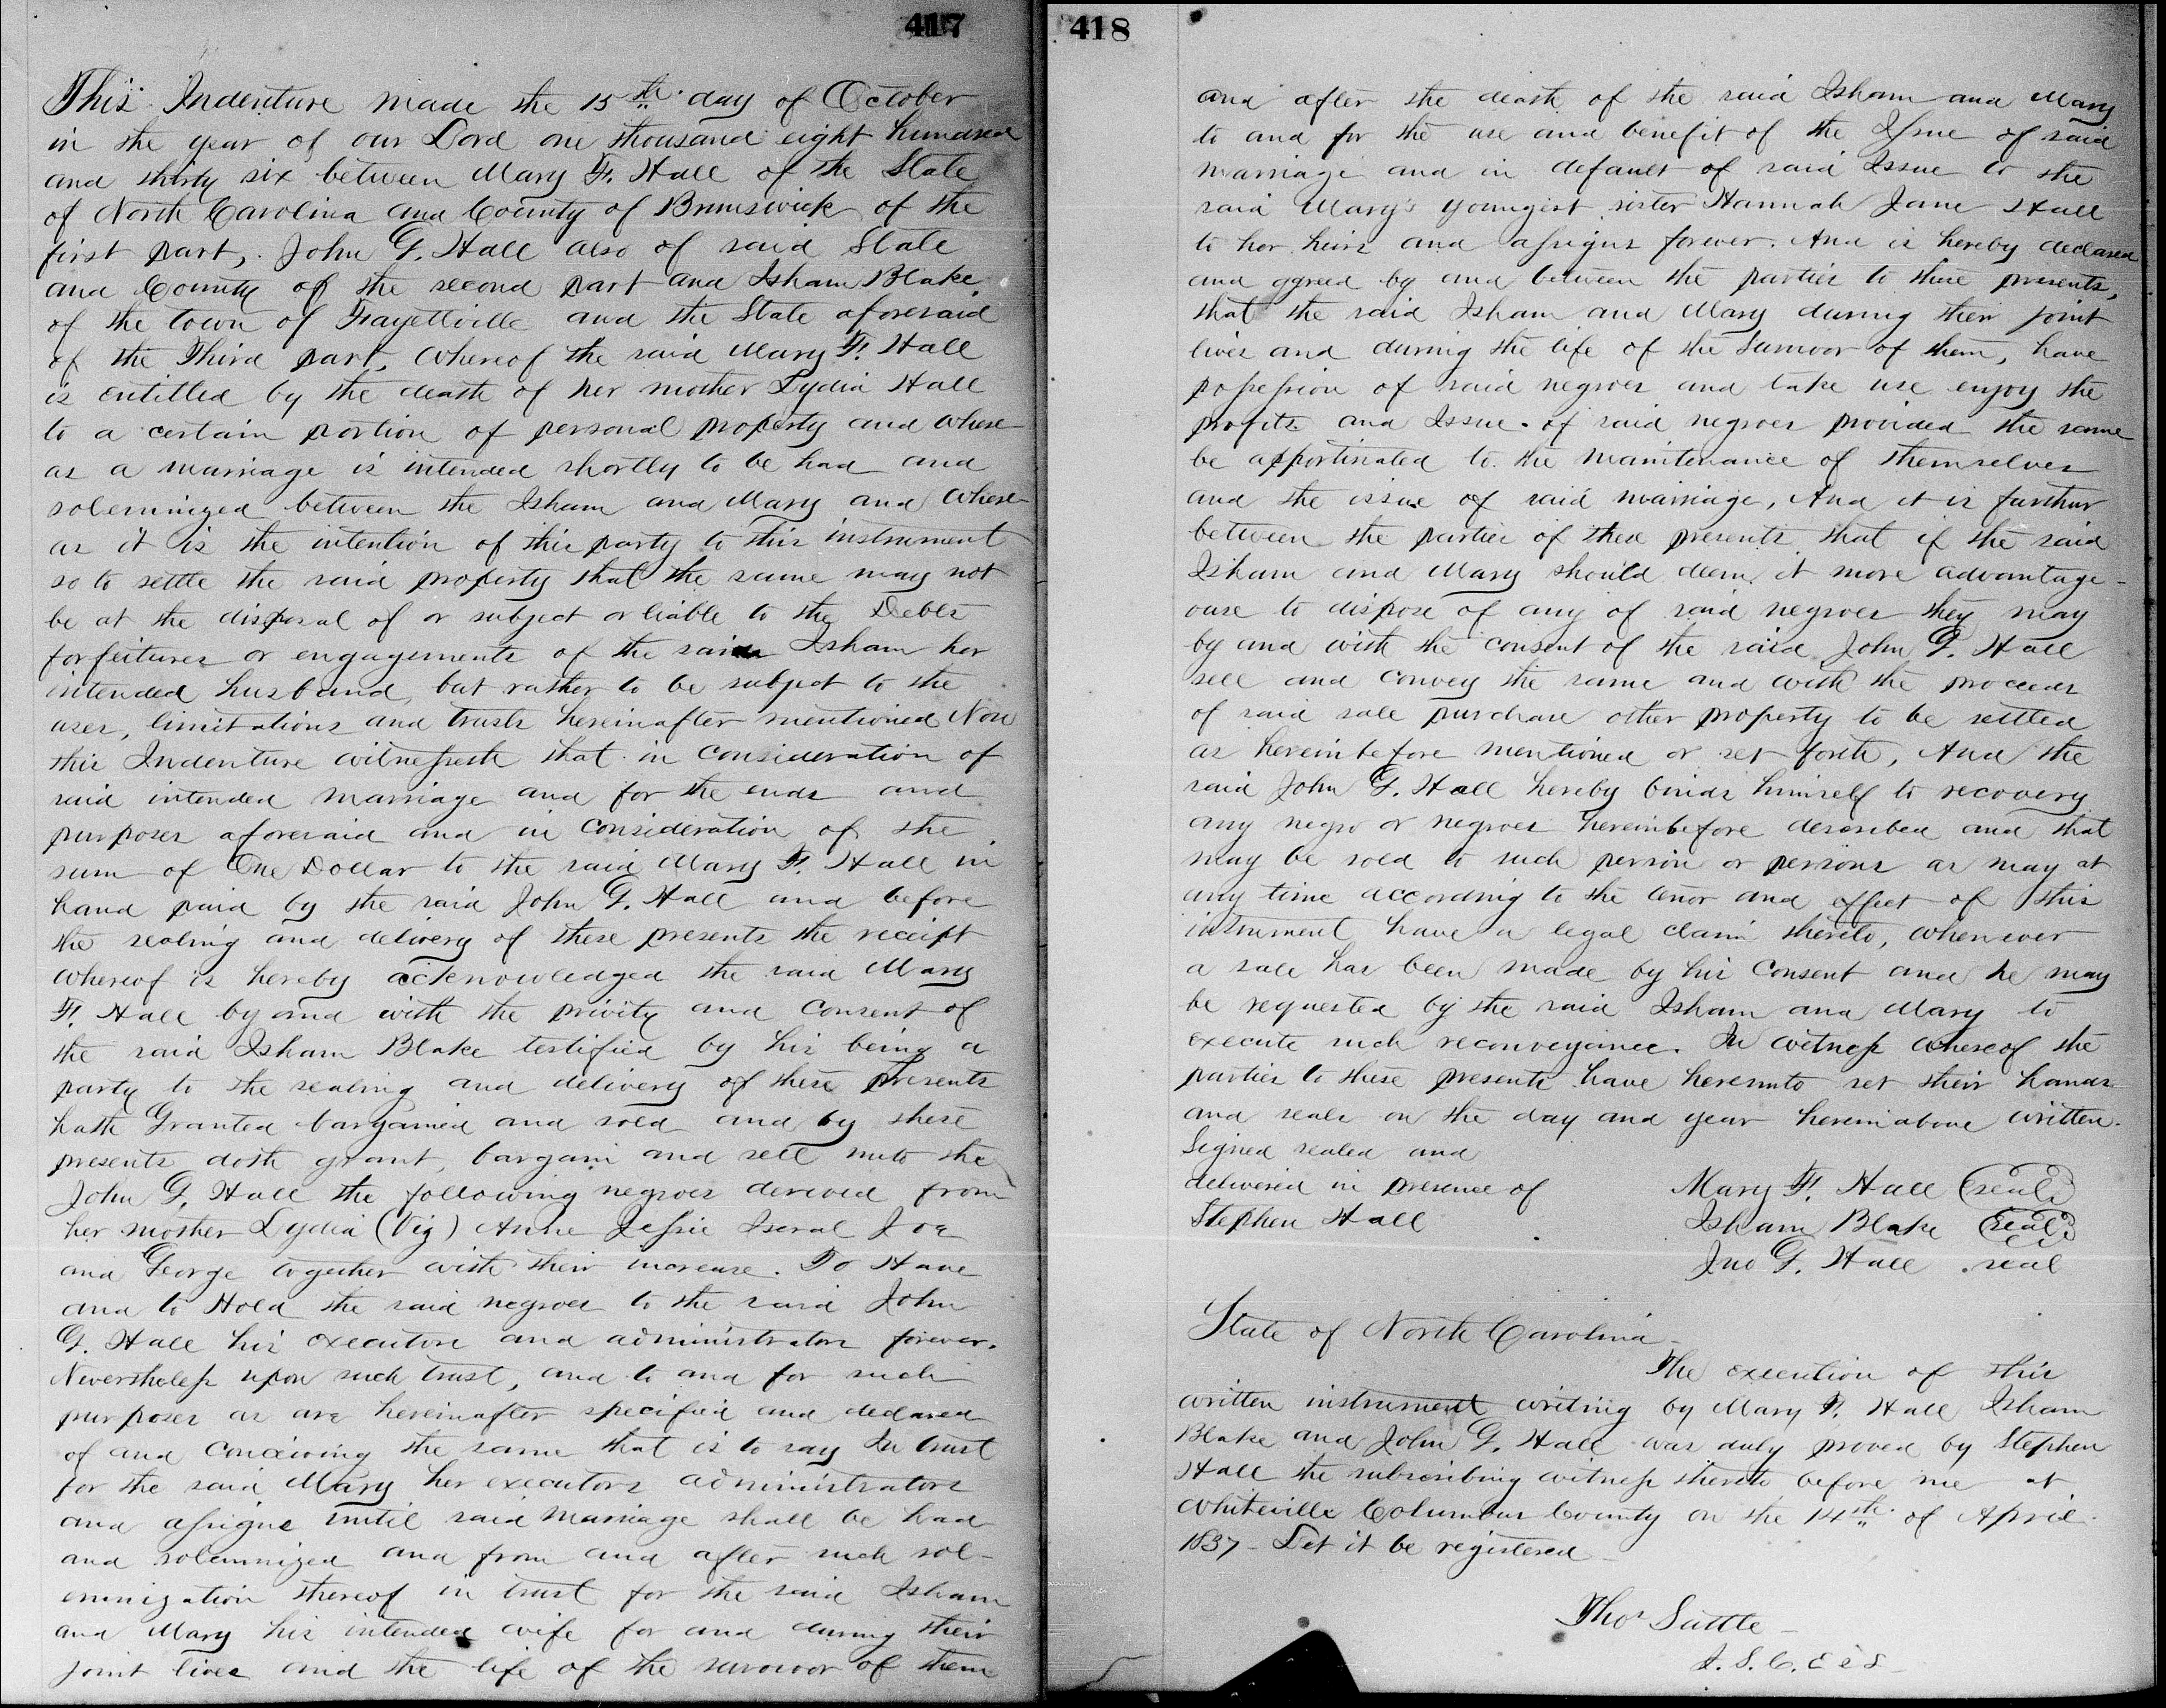 417
This Indenture made the 15th. day of October
in the year of our Lord one thousand eight hundred
and thirty six between Mary F. Hall of the State
of North Carolina and County of Brunswick of the
first part, John G. Hall also of said State
and County of the second part and Isham Blake
of the town of Fayettville and the State aforesaid
of the Third part, whereof the said Mary F. Hall
is entitled by the death of her mother Lydia Hall
to a certain portion of personal property and where
as a marriage is intended shortly to be had and
solemnized between the Isham and Mary and where
as it is the intention of this party to this instrument
so to settle the said property that the same may not
be at the disposal of or subject or liable to the Debts
forfeitures or engagements of the said Isham her
intended husband, but rather to be subject to the
uses, limitations and trusts hereinafter mentioned Now
this Indenture witnesseth that in consideration of
said intended marriage and for the ends and
purposes aforesaid and in consideration of the
sum of One Dollar to the said Mary F. Hall in
hand paid by the said John G. Hall and before
the sealing and delivery of these presents the receipt
whereof is hereby acknowledged the said Mary
F. Hall by and with the privity and consent of
the said Isham Blake testified by his being a
party to the sealing and delivery of these presents
hath Granted bargained and sold and by these
presents doth grant, bargain and sell unto the
John G. Hall the following negroes derived from
her mother Lydia (Viz) Anne Jessie Iseral Joe
and George together with their increase. To Have
and to Hold the said negroes to the said John
G. Hall his executors and administrators forever.
Nevertheless upon such trust, and to and for such
purposes as are hereinafter specified and declared
of and conceiving the same that is to say In trust
for the said Mary her executors administrators
and assigns until said marriage shall be had
and solemnized and from and after such sol-
emnization thereof in trust for the said Isham
and Mary his intended wife for and during their
joint lives and the life of the survivor of them
418
and after the death of the said Isham and Mary
to and for the use and benefit of the Issue of said
marriage and in default of said Issue to the
said Mary's youngest sister Hannah Jane Hall
to her heirs and assigns forever. And is hereby declared
and agreed by and between the parties to these presents,
that the said Isham and Mary during their joint
lives and during the life of the survivor of them, have
possession of said negroes and take use enjoy the
profits and Issue of said negroes provided the same
be apportinated to the maintenance of themselves
and the issue of said marriage, And it is further
between the parties of these presents that if the said
Isham and Mary should deem it more advantage-
ouse to dispose of any of said negroes they may
by and with the consent of the said John G. Hall
sell and convey the same and with the proceeds
of said sale purchase other property to be settled
as hereinbefore mentioned or set forth, And the
said John G. Hall hereby binds himself to recovery
any negro or negroes hereinbefore described and that
may be sold to such person or persons as may at
any time according to the tenor and effect of this
instrument have a legal claim thereto, whenever
a sale has been made by his consent and he may
be requested by the said Isham and Mary to
execute such reconveyance. In witness whereof the
parties to these presents have hereunto set their hands
and seals on the day and year hereinabove written.
Signed sealed and
delivered in presence of Mary F. Hall (seal)
Stephen Hall Isham Blake (seal)
Jno G. Hall . seal
State of North Carolina
The execution of this
written instrument writing by Mary F. Hall Isham
Blake and John G. Hall was duly proved by Stephen
Hall the subscribing witness thereto before me at
Whiteville Columbus County on the 14th. of April
1837 - Let it be registered
Thos Suttle
J. S. C. E & S